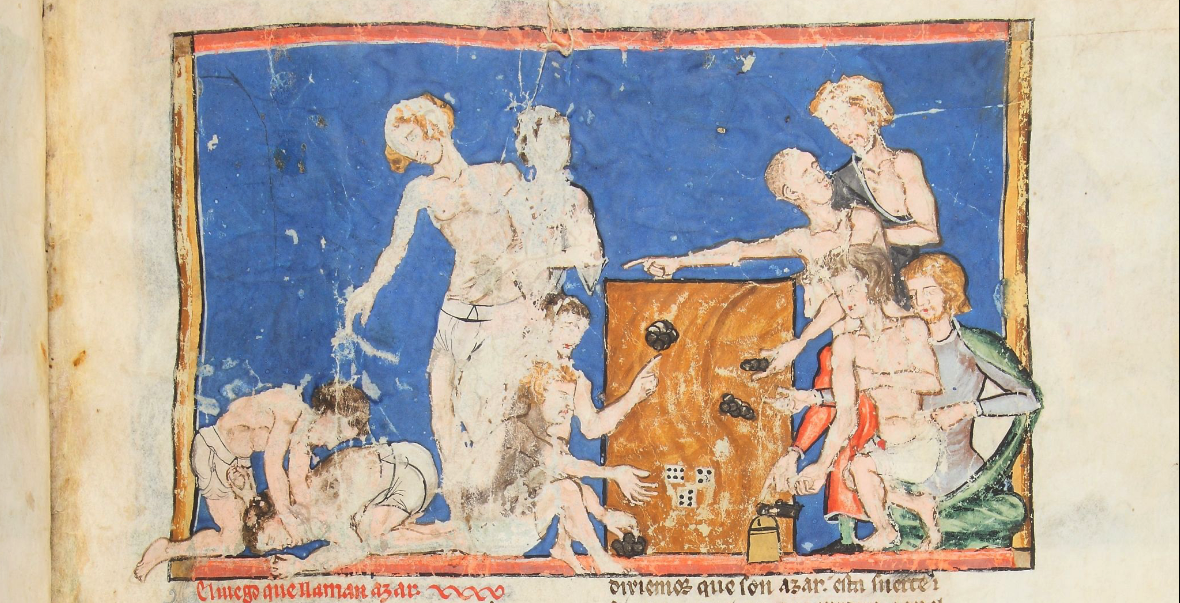 El iuego que llaman azar
diriemos que son azar. esta suerte